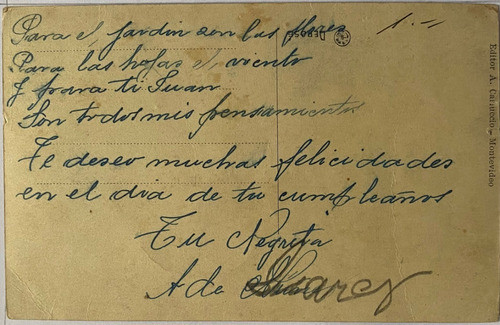 Para el jardin son las flores
Para las hojas el viento
Y para ti Juan
Son todos mis pensamientos
Te deseo muchas felicidades
en el dia de tu cumpleaños
Tu Negrita
Ada Suarez
1.--
Editor A. Carluccio, Montevideo